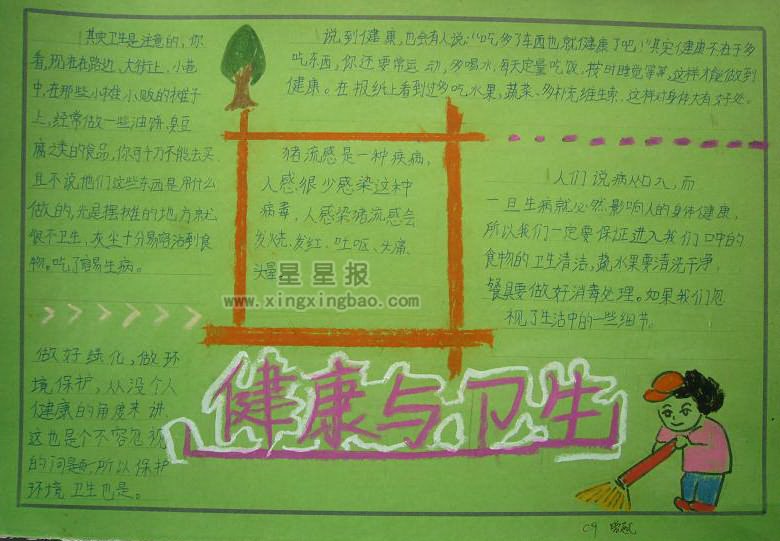 其实卫生是注意的，你
看，现在在路边、大街上、小巷
中，在那些小摊小贩的摊子
上，经常做一些油饼、臭豆
腐之类的食品，你可千万不能去买
且不说他们这些东西是用什么
做的，光是摆摊的地方就
很不卫生，灰尘十分易容沾到食
物。吃了容易生病。
说到健康，也会有人说：“吃多了东西也就健康了吧！”其实健康不在于多
吃东西，你还要常运动，多喝水，每天定量吃饭、按时睡觉等等，这样才能做到
健康。在报纸上看到过多吃水果，蔬菜、多补充维生素、这样对身体大有好处。
猪流感是一种疾病，
人感很少感染这种
病毒，人感染猪流感会
发烧、发红、吐呕、头痛、
头晕。
人们说病从口入，而
一旦生病就必然影响人的身体健康，
所以我们一定要保证进入我们口中的
食物的卫生清洁，蔬水果要清洗干净，
餐具要做好消毒处理。如果我们忽
视了生活中的一些细节。
星星报
www.xingxingbao.com
做好绿化，做环
境保护，从没个人
健康的角度来讲，
这也是个不容忽视
的问题，所以保护
环境卫生也是。
健康与卫生